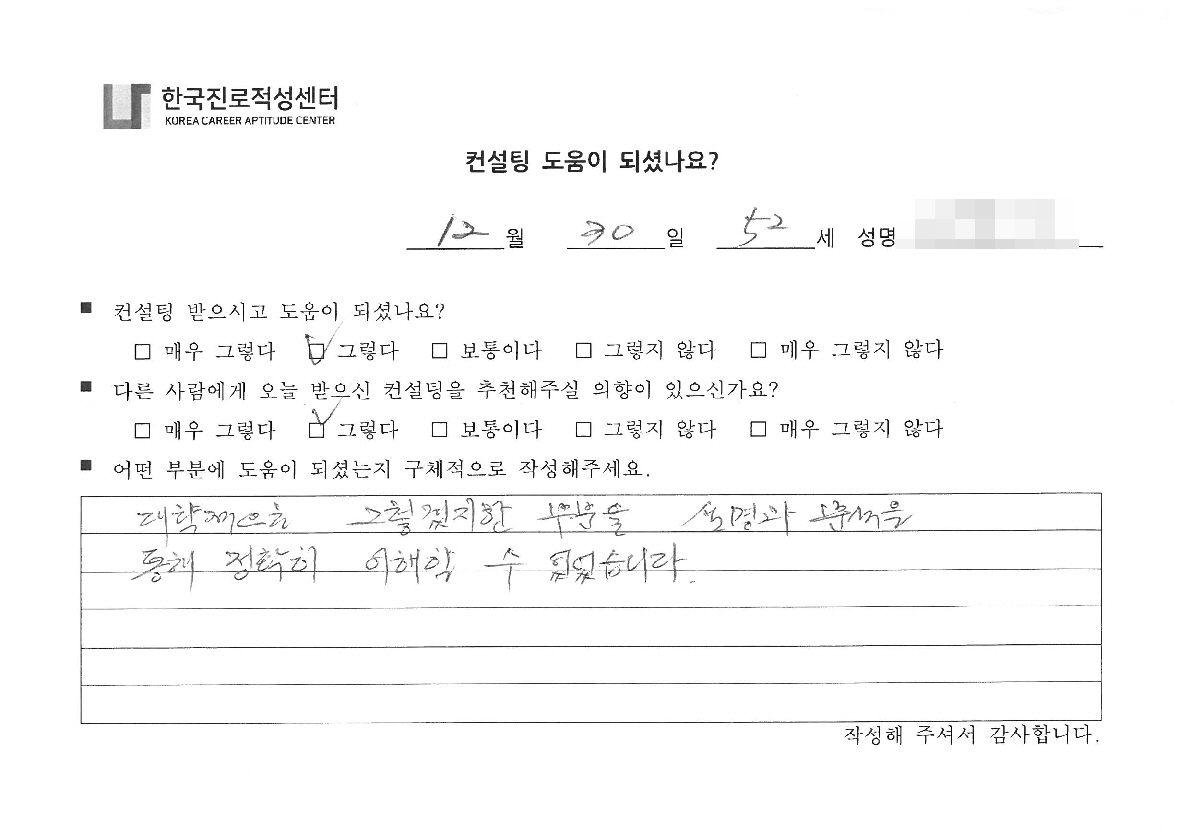 한국진로적성센터
KOREA CAREER APTITUDE CENTER
컨설팅 도움이 되셨나요?
12월 30일 52세 성명
■ 컨설팅 받으시고 도움이 되셨나요?
□ 매우 그렇다 ☑ 그렇다 □ 보통이다 □ 그렇지 않다 □ 매우 그렇지 않다
■ 다른 사람에게 오늘 받으신 컨설팅을 추천해주실 의향이 있으신가요?
□ 매우 그렇다 ☑ 그렇다 □ 보통이다 □ 그렇지 않다 □ 매우 그렇지 않다
■ 어떤 부분에 도움이 되셨는지 구체적으로 작성해주세요.
부분을 설명과 분석을
통해 정확히 이해할 수
작성해 주셔서 감사합니다.